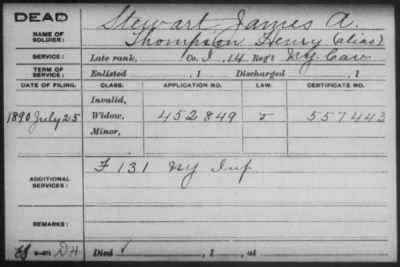 DEAD
NAME OF SOLDIER:
Stewart, James A.
Thompson Henry (alias)
SERVICE: Late rank, Co. I, 14 Reg't N.Y. Cav
TERM OF SERVICE: Enlisted , 1 Discharged , 1
DATE OF FILING. CLASS. APPLICATION NO. LAW. CERTIFICATE NO.
Invalid,
1890 July 25 Widow, 452849 557443
Minor,
ADDITIONAL SERVICES: F 131 NY Inf
REMARKS:
Died , 1 , at